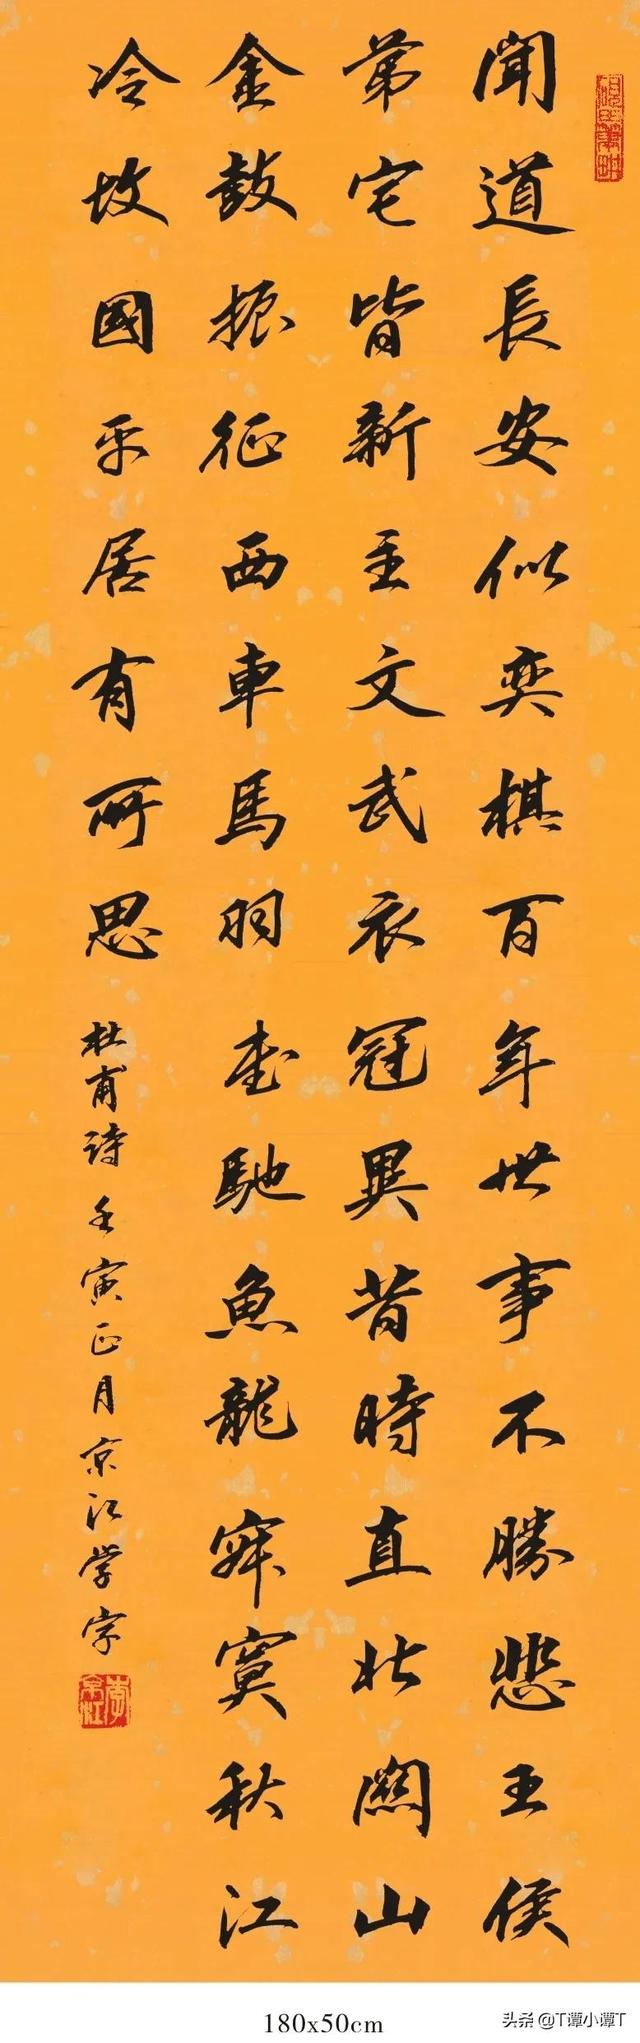 聞道長安似奕棋百年世事不勝悲王侯
苐宅皆新主文武衣冠異昔時直北關山
金鼓振征西車馬羽書馳魚龍寂寞秋江
冷故國平居有所思 杜甫诗壬寅正月京江学字
李京江
180x50cm
头条 @T谭小谭T